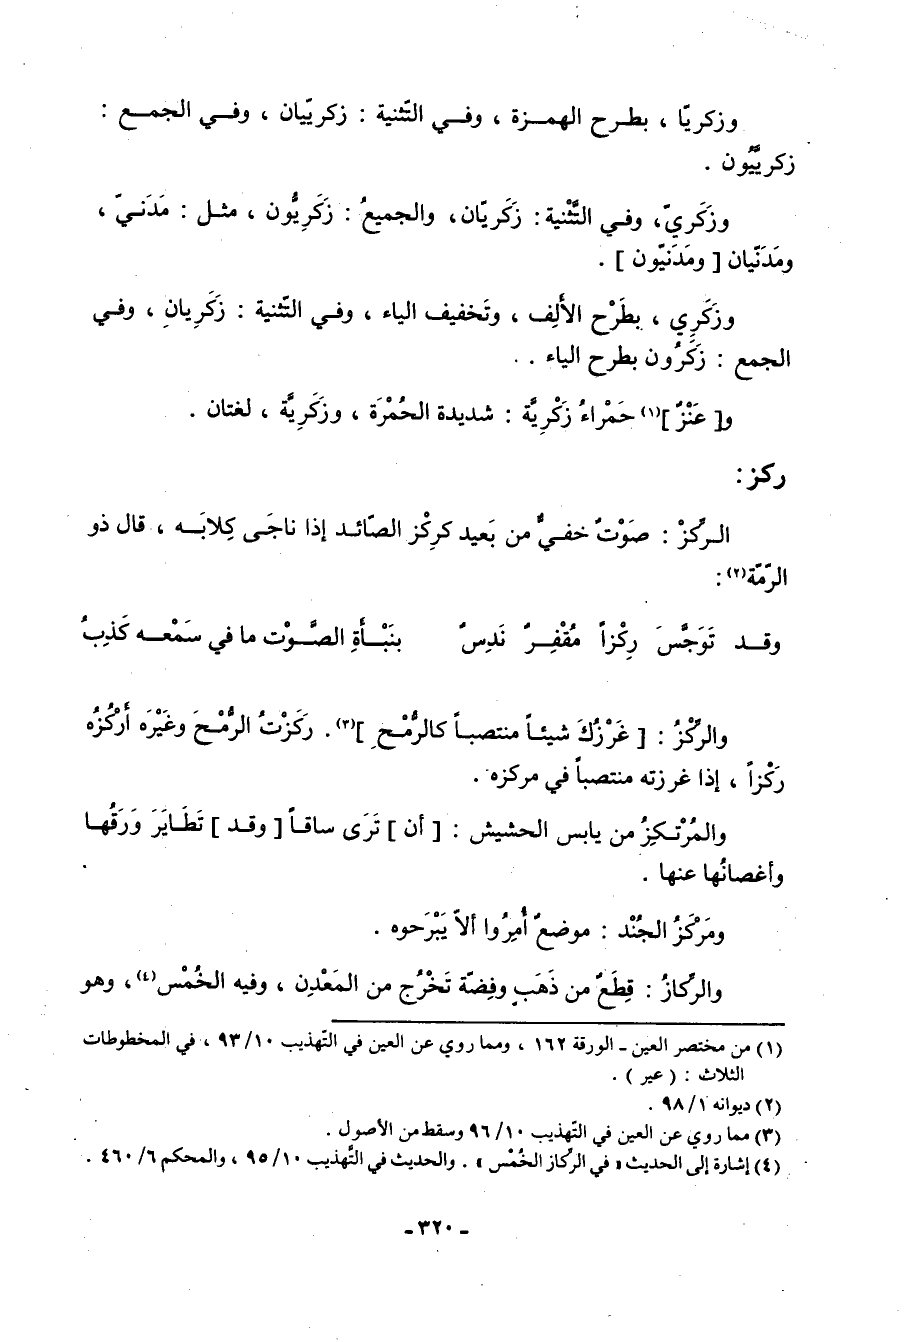 وزكريّا ، بطرح الهمزة ، وفي التّثنية : زكريّيان ، وفي الجمع :
زكريّيُّون .
وزَكَريّ، وفي التَّثْنية : زَكَريّان، والجميعُ : زَكَرِيُّون ، مثل : مَدَنيّ ،
ومَدَنّيان [ ومَدَنيّون ] .
وزَكَرِي ، بطَرْح الألِف ، وتَخفيف الياء ، وفي التّثنية : زَكَرِيانِ ، وفي
الجمع : زَكَرُون بطرح الياء .
و[ عَنْزٌ ](١) حَمْراءُ زَكْرِيَّة : شديدة الحُمْرَة ، وزَكَرِيَّة ، لغتان .
ركز :
الرِّكْزُ : صَوْتٌ خفيٌّ من بَعيد كركْز الصّائد إذا ناجَى كِلابَه ، قال ذو
الرّمّة(٢) :
وقد تَوَجَّسَ رِكْزاً مُقْفِرٌ نَدِسٌ بنَبْأَةِ الصَّوْت ما في سَمْعه كَذِبُ
والرَّكْزُ : [ غَرْزُكَ شيئاً منتصباً كالرُّمْحِ ](٣) . رَكَزْتُ الرُّمْحَ وغَيْرَه أَرْكُزُه
رَكْزاً ، إذا غرزته منتصباً في مركزه .
والمُرْتَكِزُ من يابس الحشيش : [ أن ] تَرَى ساقاً [ وقد ] تَطَايَرَ وَرَقُها
وأغصانُها عنها .
ومَرْكَزُ الجُنْد : موضعٌ أُمِرُوا ألاّ يَبْرَحوه .
والرِّكازُ : قِطَعٌ من ذَهَبٍ وفِضّة تَخْرُج من المَعْدِن ، وفيه الخُمْس(٤) ، وهو
(١) من مختصر العين ـ الورقة ١٦٢ ، ومما روي عن العين في التهذيب ١٠/ ٩٣ ، في المخطوطات
الثلاث : ( عير ) .
(٢) ديوانه ١/ ٩٨ .
(٣) مما روي عن العين في التّهذيب ١٠/ ٩٦ وسقط من الأصول .
(٤) إشارة إلى الحديث « في الرِّكاز الخُمْس » . والحديث في التَّهذيب ١٠/ ٩٥ ، والمحكم ٦/ ٤٦٠ .
ـ ٣٢٠ ـ